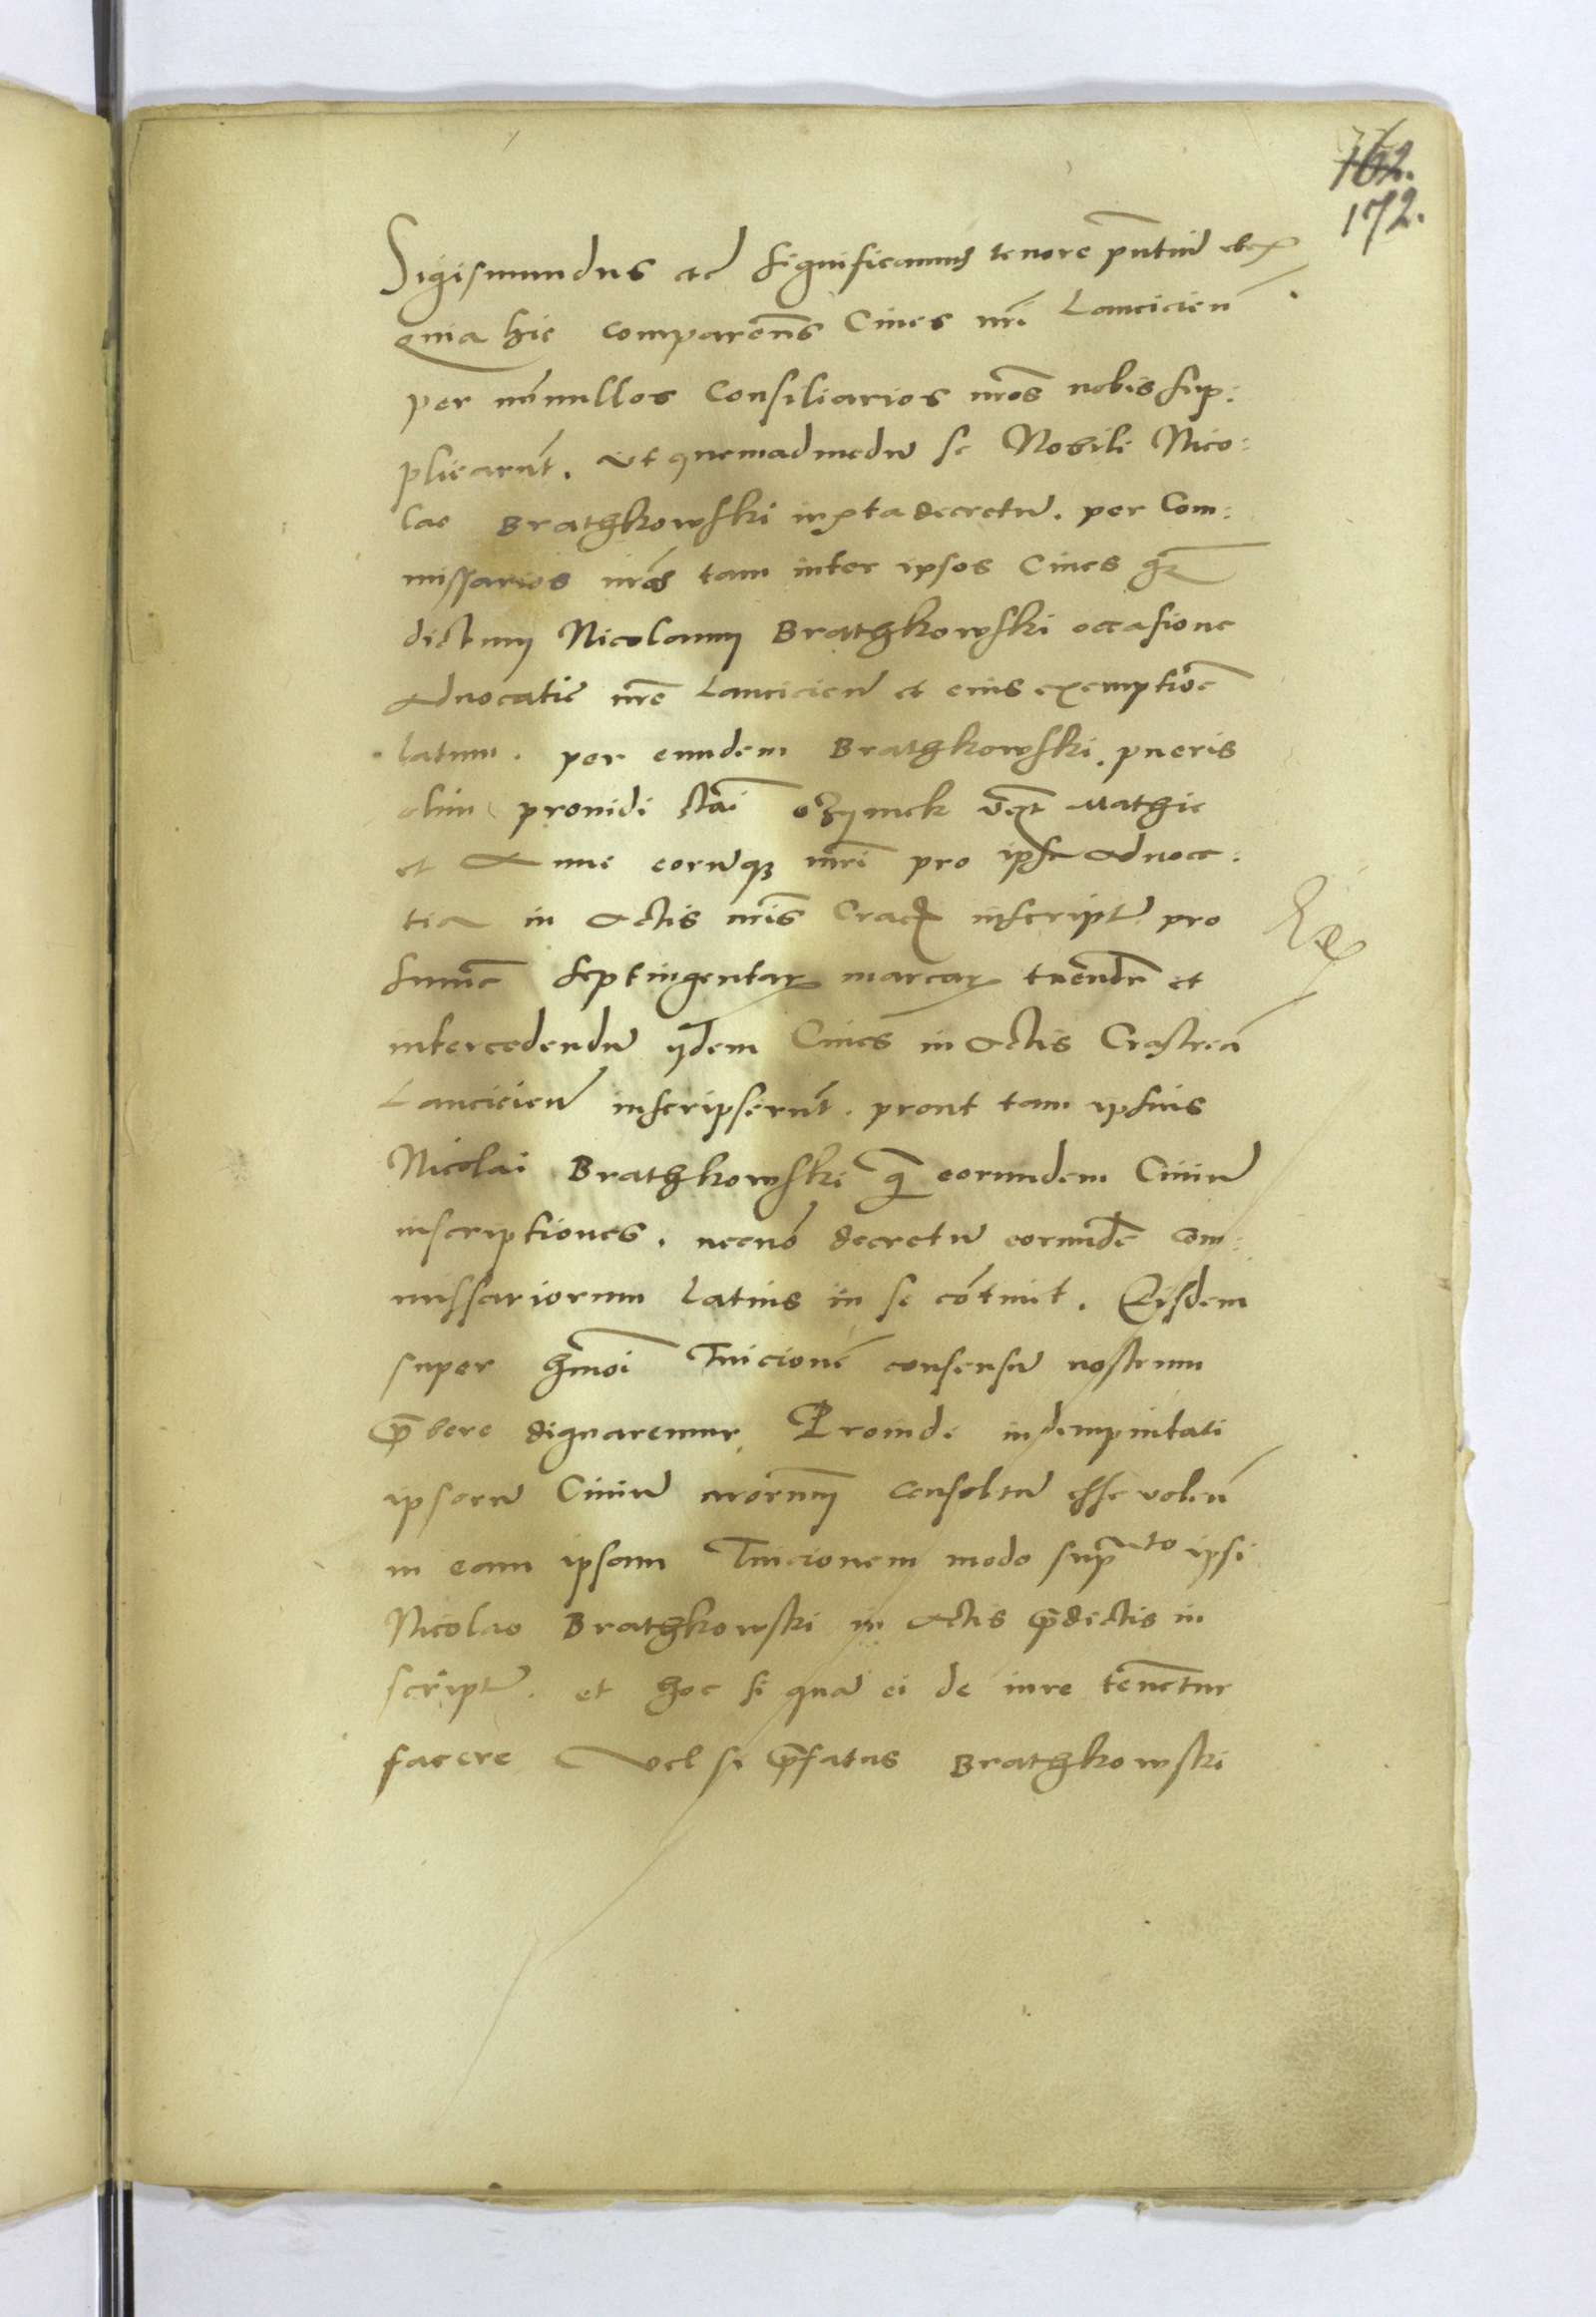 162.
172.
Sigismundus etc Significamus tenore pntiũ etc
quia hic comparen̄s Ciues nr̄i Lancicien̄
per nōnullos Consiliarios nr̄os nobis sup:
plicarūt. vt quemadmodū se Nobili Nico:
lao Brathkowski iuxta decretū. per Com:
missarios nr̄os tam inter ipsos Ciues q̄z
dictum Nicolaum Brathkowski occasione
Aduocatie nr̄e Lancicien̄ et eius exemptiōe
latum. per eundem Brathkowski. pueris
olim prouidi Stāi ozÿmek vz̄t Mathie
et Anne eorūq3 mr̄i pro ipsa Aduoca:
tia in Actis nr̄is Crac̄ inscript̄ pro
sum̄a septingentarꝝ marcarꝝ tuendū et
intercedendū ÿdem Ciues in Actis Castren̄
Lancicien̄ inscripserūt. prout tam ipsius
Nicolai Brathkowski q̄ eorundem Ciuiū
inscriptiones. necnō decretū eorundē Com:
missariorum latius in se cōtinēt. Eisdem
super hm̄oi Tuicionē consensū nostrum
p̄bere dignaremur. Proinde indempnitati
ipsorū Ciuiū nr̄orum consultū esse volen̄
in eam ipsam Tuicionem modo sup̄to ipsi
Nicolao Brathkowski in Actis p̄dictis in
script̄. et hoc si quā ei de iure tenētur
facere Vel si p̄fatus Brathkowski